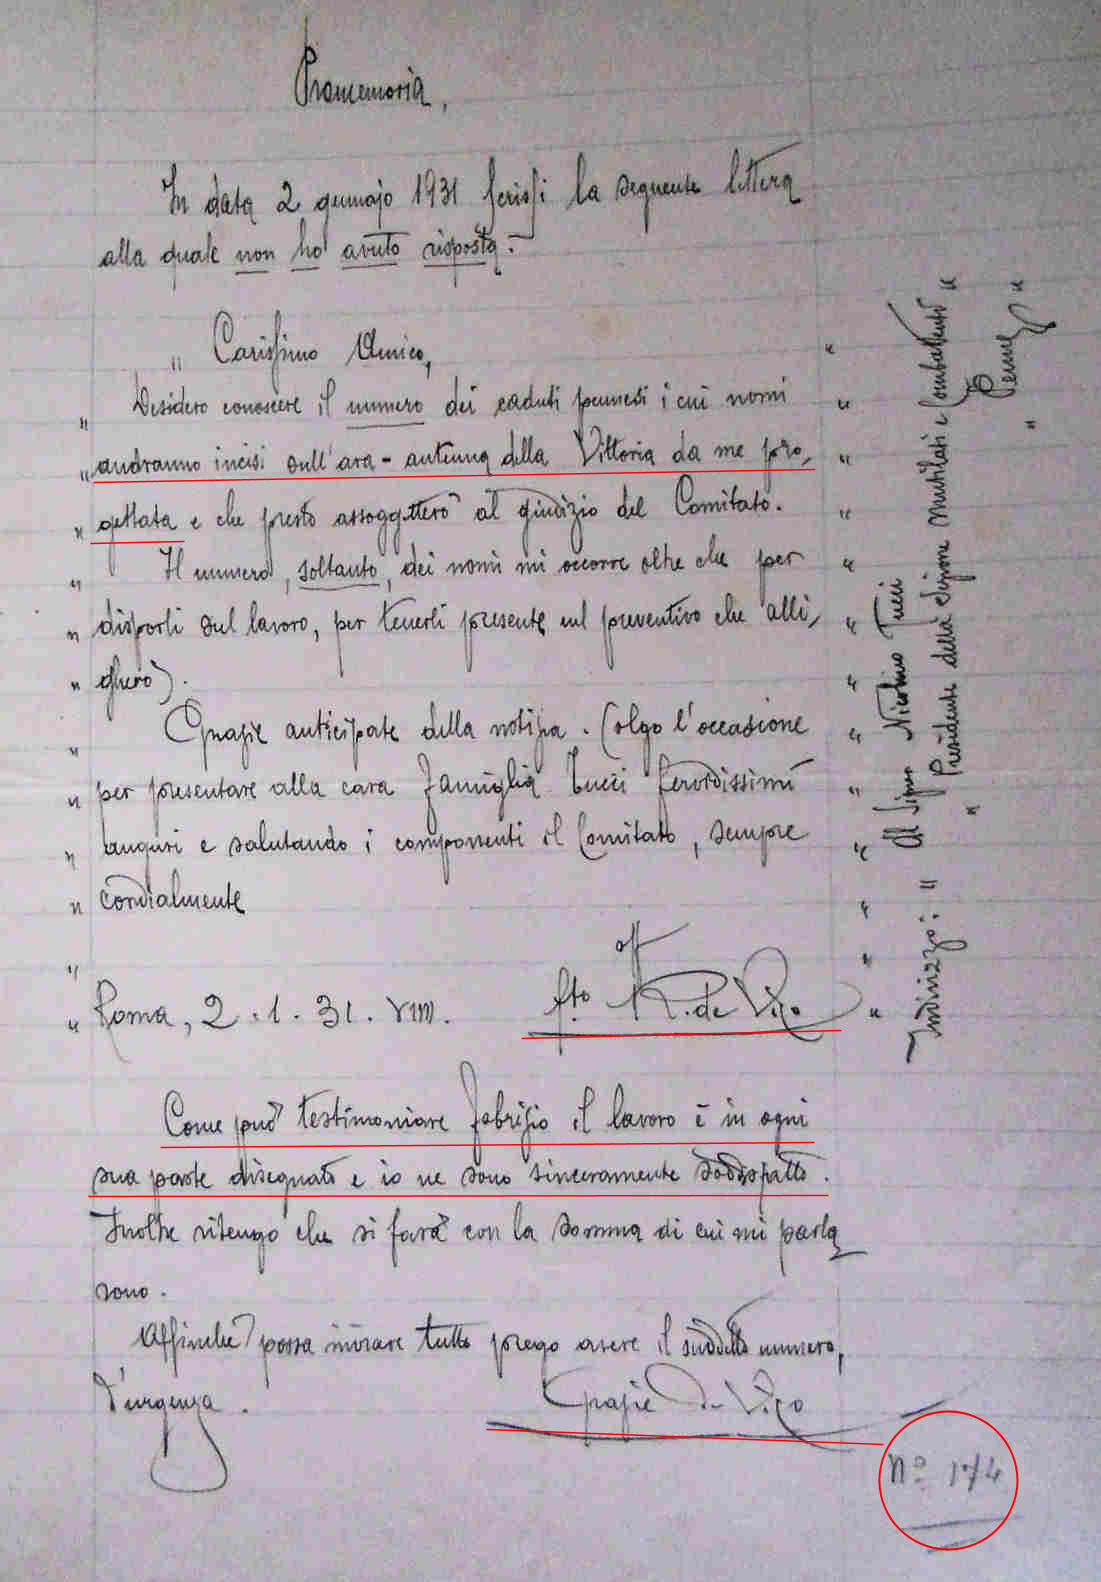 Promemoria,
In data 2 gennajo 1931 scrissi la seguente lettera
alla quale non ho avuto risposta.-
" Carissimo Amico, "
" Desidero conoscere il numero dei caduti pennesi i cui nomi "
" andranno incisi sull'ara - antenna della Vittoria da me pro, "
" gettata e che presto assoggetterò al giudizio del Comitato. "
" Il numero, soltanto, dei nomi mi occorre oltre che per "
" disporli sul lavoro, per tenerli presente nel preventivo che alli, "
" gherò). "
" Grazie anticipate della notizia. Colgo l'occasione "
" per presentare alla cara famiglia Tucci fervidissimi "
" auguri e salutando i componenti il Comitato, sempre "
" cordialmente "
" aff "
" Roma, 2.1.31. VIIII. f.to R. de Vico "
Come può testimoniare Fabrizio il lavoro è in ogni
sua parte disegnato e io ne sono sinceramente soddisfatto.
Inoltre ritengo che si farà con la somma di cui mi parla
rono.
Affinché possa inviare tutto prego avere il suddetto numero,
d'urgenza. Grazie De Vico
N° 174
Indirizzo: " Al Signor Nicolino Tucci
" Presidente della Sezione Mutilati e Combattenti "
" Penne "